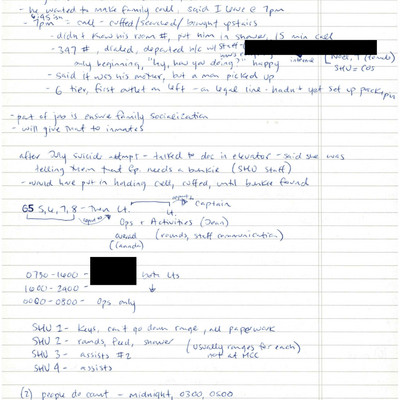 - he wanted to make family call, said I leave @ 7pm
6:45 pm
- 7pm - call - cuffed/searched/brought upstairs
- didn't know his room #, put him in shower, 15 min call
- 347 #, dialed, departed
only beginning, "hey, how you doing?" happy
SHU = COs
- said it was his mother, but a man picked up
- G tier, first outlet on left - on legal line - hadn't yet set up
- part of job is ensure family socialization
- will give that to inmates
after July suicide attempt - talked to doc in elevator - said she was
telling them that Ep. needs a bunkie (SHU staff)
- would have put in holding cell, cuffed, until bunkie found
GS 5, 6, 7, 8 - Then Lt. Captain
Lt.
Ops + Activities
(rounds, staff communication)
0730-1600 - both Lts
1600-2400 - ↓
0000-0800 - Ops only
SHU 1 - keys, can't go down range, all paperwork
SHU 2 - rounds, feed, shower (usually ranges for each)
SHU 3 - assists #2 not at MCC
SHU 4 - assists
(2) people do count - midnight, 0300, 0500